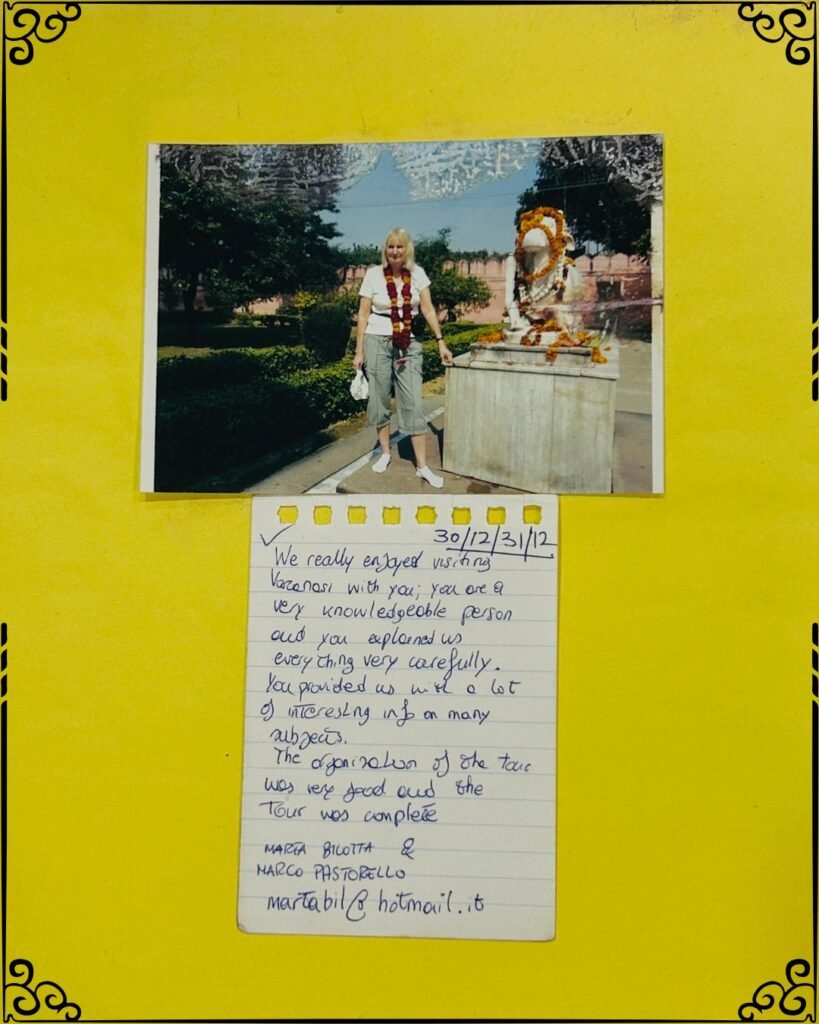 30/12/31/12
We really enjoyed visiting
Varanasi with you; you are a
very knowledgeable person
and you explained us
everything very carefully.
You provided us with a lot
of interesting info on many
subjects.
The organization of the tour
was very good and the
Tour was complete
MARTA BILOTTA &
MARCO PASTORELLO
martabil@hotmail.it